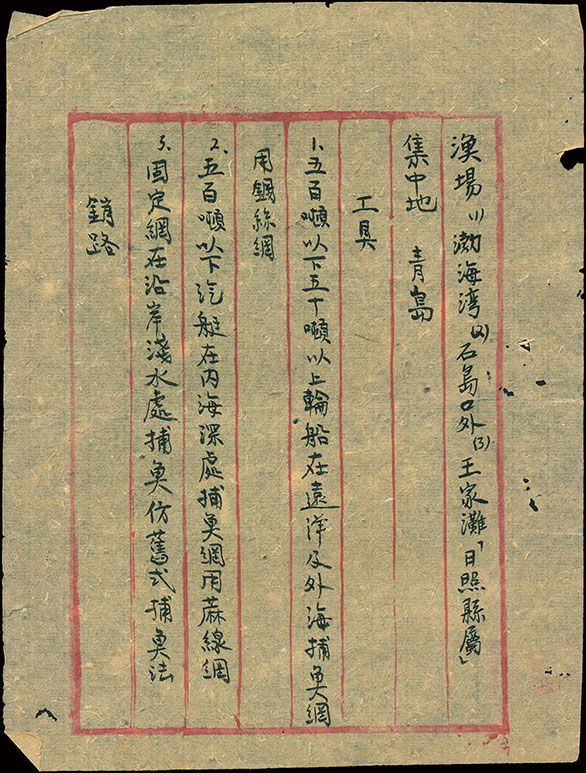 漁場 (1) 渤海湾 (2) 石島口外 (3) 王家灘「日照縣屬」
集中地 青島
工具
1、五百噸以下五十噸以上輪船在遠洋及外海捕魚網
用鋼絲網
2、五百噸以下汽艇在内海深處捕魚網用蔴線網
3、固定網在沿岸淺水處捕魚仿舊式捕魚法
銷路